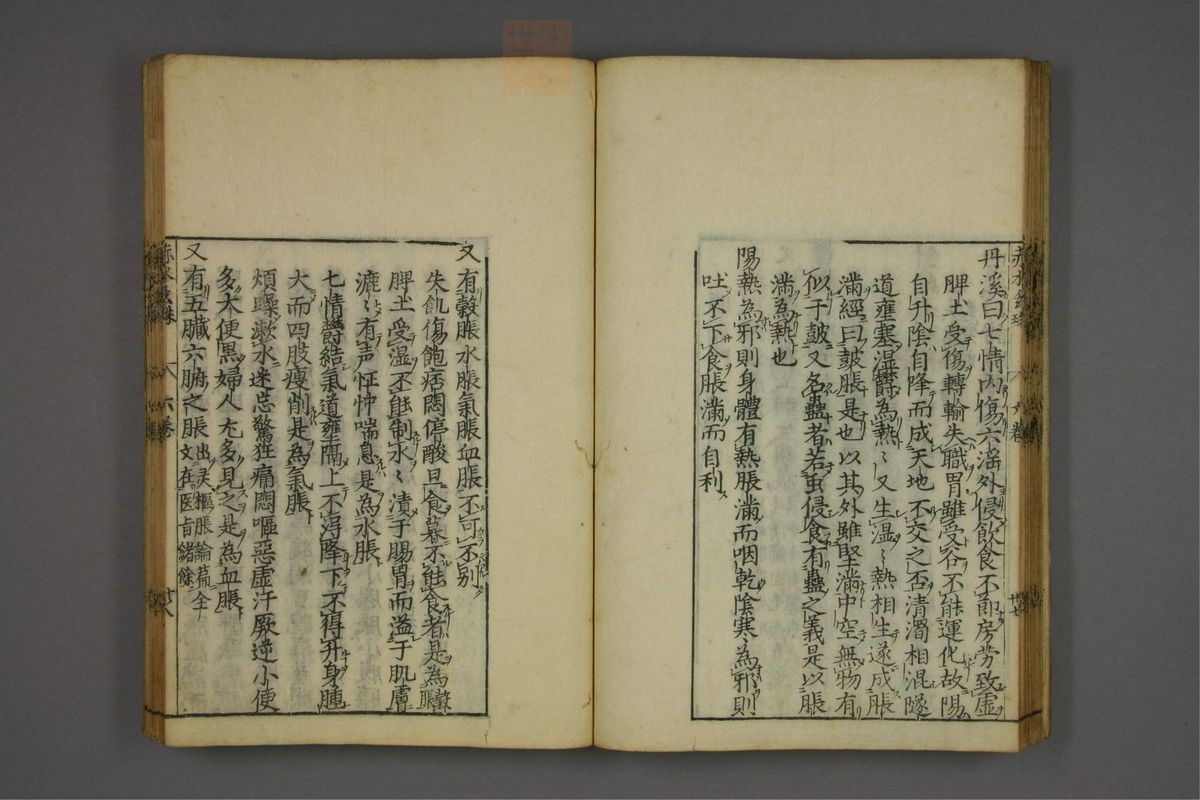 丹溪曰七情内傷六淫外侵飲食不節房劳致虚
脾土受傷轉輸失職胃雖受谷不能運化故陽
自升陰自降而成天地不交之否清濁相混隧
道壅塞湿欝為熱〻又生湿〻熱相生遂成脹
滿經曰皷脹是也以其外雖堅滿中空無物有
似于皷又名蠱者若虫侵食有蠱之義是以脹
滿為熱也
陽熱為邪則身體有熱脹滿而咽乾陰寒〻為邪則
吐不下食脹滿而自利
又有穀脹水脹氣脹血脹不可不别
失飢傷飽痞悶停酸旦食暮不能食者是為穀脹
脾土受湿不能制水〻漬于腸胃而溢于肌膚
漉〻有声怔忡喘息是為水脹
七情欝結氣道壅隔上不得降下不得升身腫
大而四肢瘦削是為氣脹
煩躁漱水迷忘驚狂痛悶嘔惡虚汗厥逆小便
多大便黒婦人尤多見之是為血脹
又有五臓六腑之脹出灵樞脹論篇全文在医旨緒餘
六卷